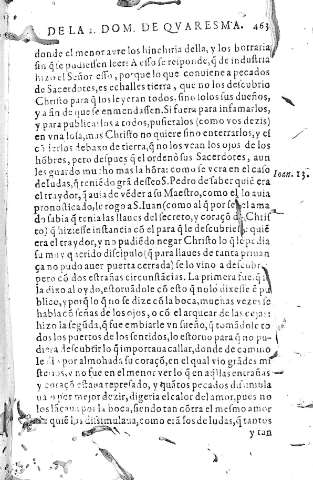 DE LA 2. DOM. DE QVARESMA. 463
donde el menor ayre los hinchiria della, y los borraria
sin q̃ se pudiessen leer: A esso se respõde, q̃ de industria
hizo el Señor esso, porque lo que conuiene a pecados
de Sacerdotes, es echalles tierra, que no los descubrio
Christo para q̃ los leyeran todos, sino solos sus dueños,
y a fin de que se enmendassen. Si fuera para infamarlos,
y para publicarlos a todos, pusieralos (como vos dezis)
en vna losa, mas Christo no quiere sino enterrarlos, y es
debaxo de tierra, q̃ no los vean los ojos de los
hõbres, pero despues q̃ el ordenò sus Sacerdotes, aun
les guardò mucho mas la hõra: como se vera en el caso
de Iudas, q̃ teniẽdo grã desseo S. Pedro de saber quiẽ era
Ioan. 13.
el traydor, q̃ auia de vẽder a su Maestro, como el lo auia
pronosticado, le rogo a S. Iuan (como al q̃ por ser el ama
do sabia q̃ tenia las llaues del secreto, y coraçõ de Chri
to) q̃ hiziesse instancia cõ el para q̃ le descubriesse quiẽ
era el traydor, y no pudiẽdo negar Christo lo q̃ le pedia
su muy querido discipulo (q̃ para llaues de tanta priuan
ça no pudo auer puerta cerrada) se lo vino a descubrir
pero cõ dos estrañas circunstãcias. La primera fue, q̃
la dixo al oydo, estoruãdole cõ esto q̃ no lo dixesse ẽ pu
blico, y porq̃ lo q̃ no se dize cõ la boca, muchas vezes se
habla cõ señas de los ojos, o cõ el arquear de las cejas:
hizo la segũda, q̃ fue embiarle vn sueño, q̃ tomãdole to
dos los puertos de los sentidos, lo estoruo para q̃ no pu-
diera descubrir lo q̃ importaua callar, dando de camino
por almohada su coraçõ, en el qual vio grãdes mi
sterios, y no fue en el menor ver lo q̃ en aq̃llas entrañas
y coraçõ estaua represado, y quãtos pecados disimula
ua o por mejor dezir, digeria el calor del amor, pues no
los lãçaua por la boca, siendo tan cõtra el mesmo amor
de quiẽ los dissimulaua, como erã los de Iudas, q̃ tantos
y tan